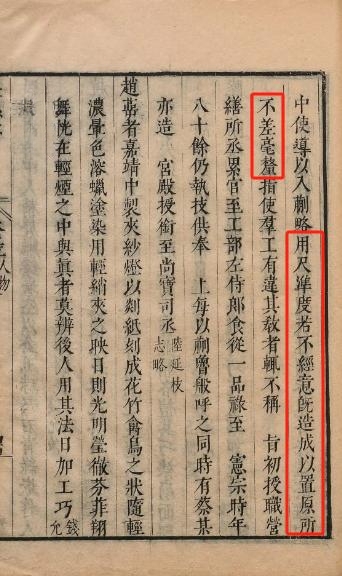 中使導以入蒯略用尺準度若不經意旣造成以置原所
不差毫釐指使羣工有違其敎者輒不稱 旨初授職營
繕所丞累官至工部左侍郎食從一品祿至 憲宗時年
八十餘仍執技供奉 上每以蒯魯般呼之同時有蔡某
亦造 宮殿授銜至尚寶司丞陸延枝志略
趙蕚者嘉靖中製夾紗燈以剡紙刻成花竹禽鳥之狀隨輕
濃暈色溶蠟塗染用輕綃夾之映日則光明瑩徹芬菲翔
舞恍在輕煙之中與眞者莫辨後人用其法日加工巧錢允
人物